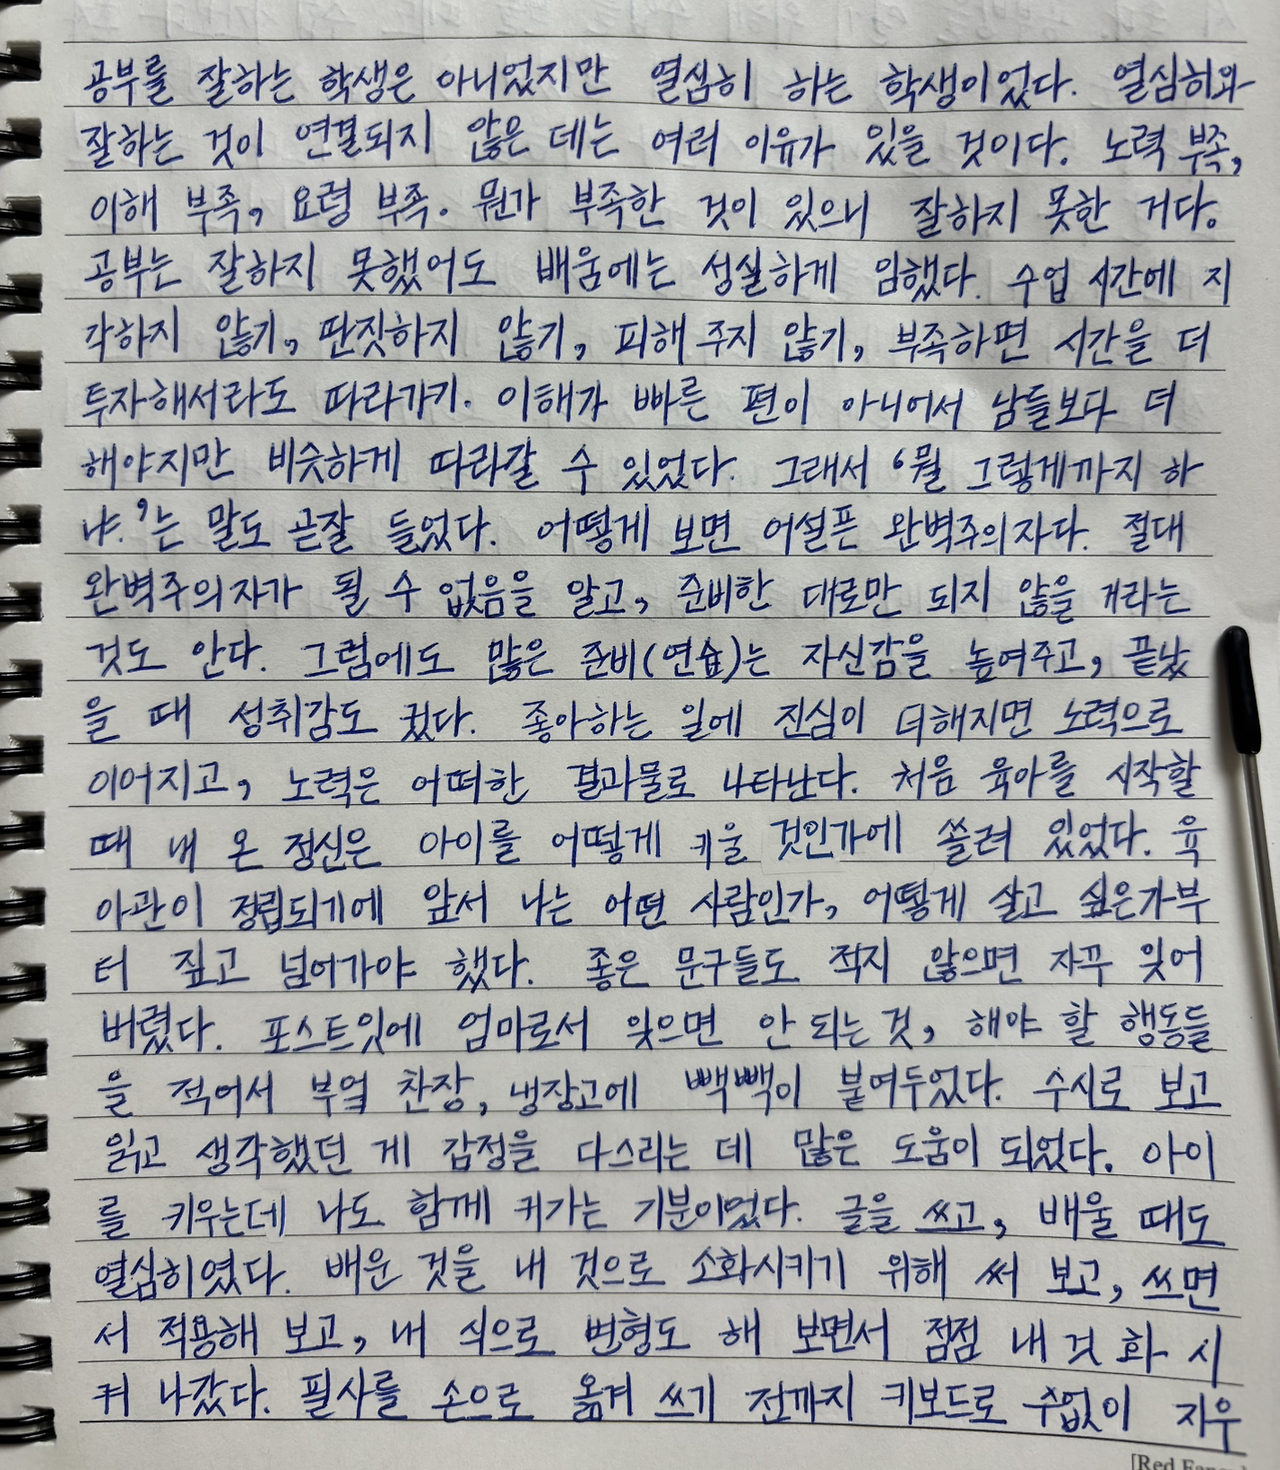 공부를 잘하는 학생은 아니었지만 열심히 하는 학생이었다. 열심히와
잘하는 것이 연결되지 않은 데는 여러 이유가 있을 것이다. 노력 부족,
이해 부족, 요령 부족. 뭔가 부족한 것이 있으니 잘하지 못한 거다.
공부는 잘하지 못했어도 배움에는 성실하게 임했다. 수업 시간에 지
각하지 않기, 딴짓하지 않기, 피해 주지 않기, 부족하면 시간을 더
투자해서라도 따라가기. 이해가 빠른 편이 아니어서 남들보다 더
해야지만 비슷하게 따라갈 수 있었다. 그래서 '뭘 그렇게까지 하
냐.'는 말도 곧잘 들었다. 어떻게 보면 어설픈 완벽주의자다. 절대
완벽주의자가 될 수 없음을 알고, 준비한 대로만 되지 않을 거라는
것도 안다. 그럼에도 많은 준비(연습)는 자신감을 높여주고, 끝났
을 때 성취감도 컸다. 좋아하는 일에 진심이 더해지면 노력으로
이어지고, 노력은 어떠한 결과물로 나타난다. 처음 육아를 시작할
때 내 온 정신은 아이를 어떻게 키울 것인가에 쏠려 있었다. 육
아관이 정립되기에 앞서 나는 어떤 사람인가, 어떻게 살고 싶은가부
터 짚고 넘어가야 했다. 좋은 문구들도 적지 않으면 자꾸 잊어
버렸다. 포스트잇에 엄마로서 잊으면 안 되는 것, 해야 할 행동들
을 적어서 부엌 찬장, 냉장고에 빽빽이 붙여두었다. 수시로 보고
읽고 생각했던 게 감정을 다스리는 데 많은 도움이 되었다. 아이
를 키우는데 나도 함께 커가는 기분이었다. 글을 쓰고, 배울 때도
열심히였다. 배운 것을 내 것으로 소화시키기 위해 써 보고, 쓰면
서 적용해 보고, 내 식으로 변형도 해 보면서 점점 내 것 화 시
켜 나갔다. 필사를 손으로 옮겨 쓰기 전까지 키보드로 수없이 지우